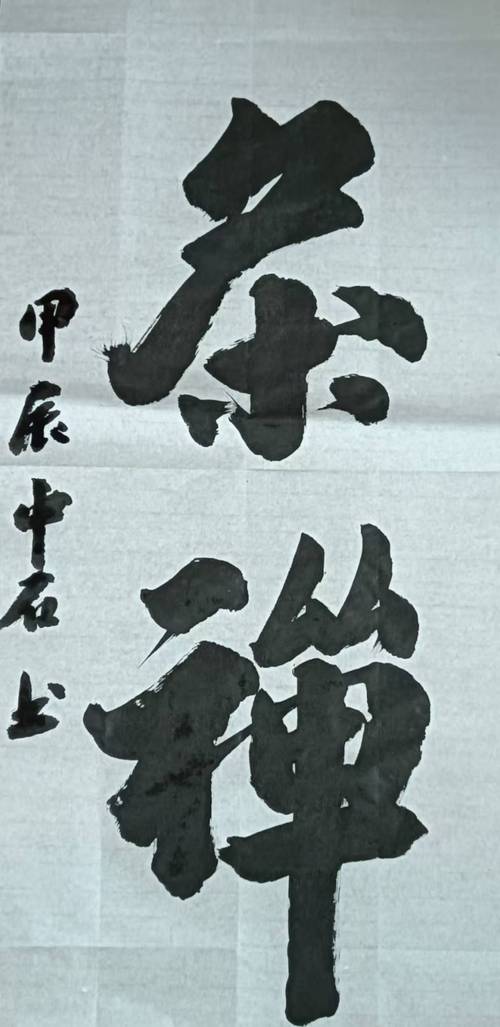 茶
禪
甲辰中石书